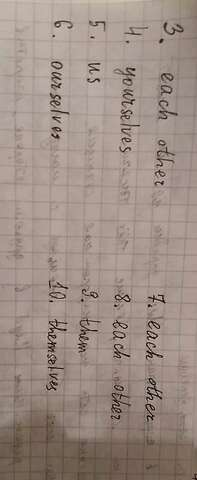 3. each other 7. each other
4. yourselves 8. each other
5. us 9. them
6. ourselves 10. themselves